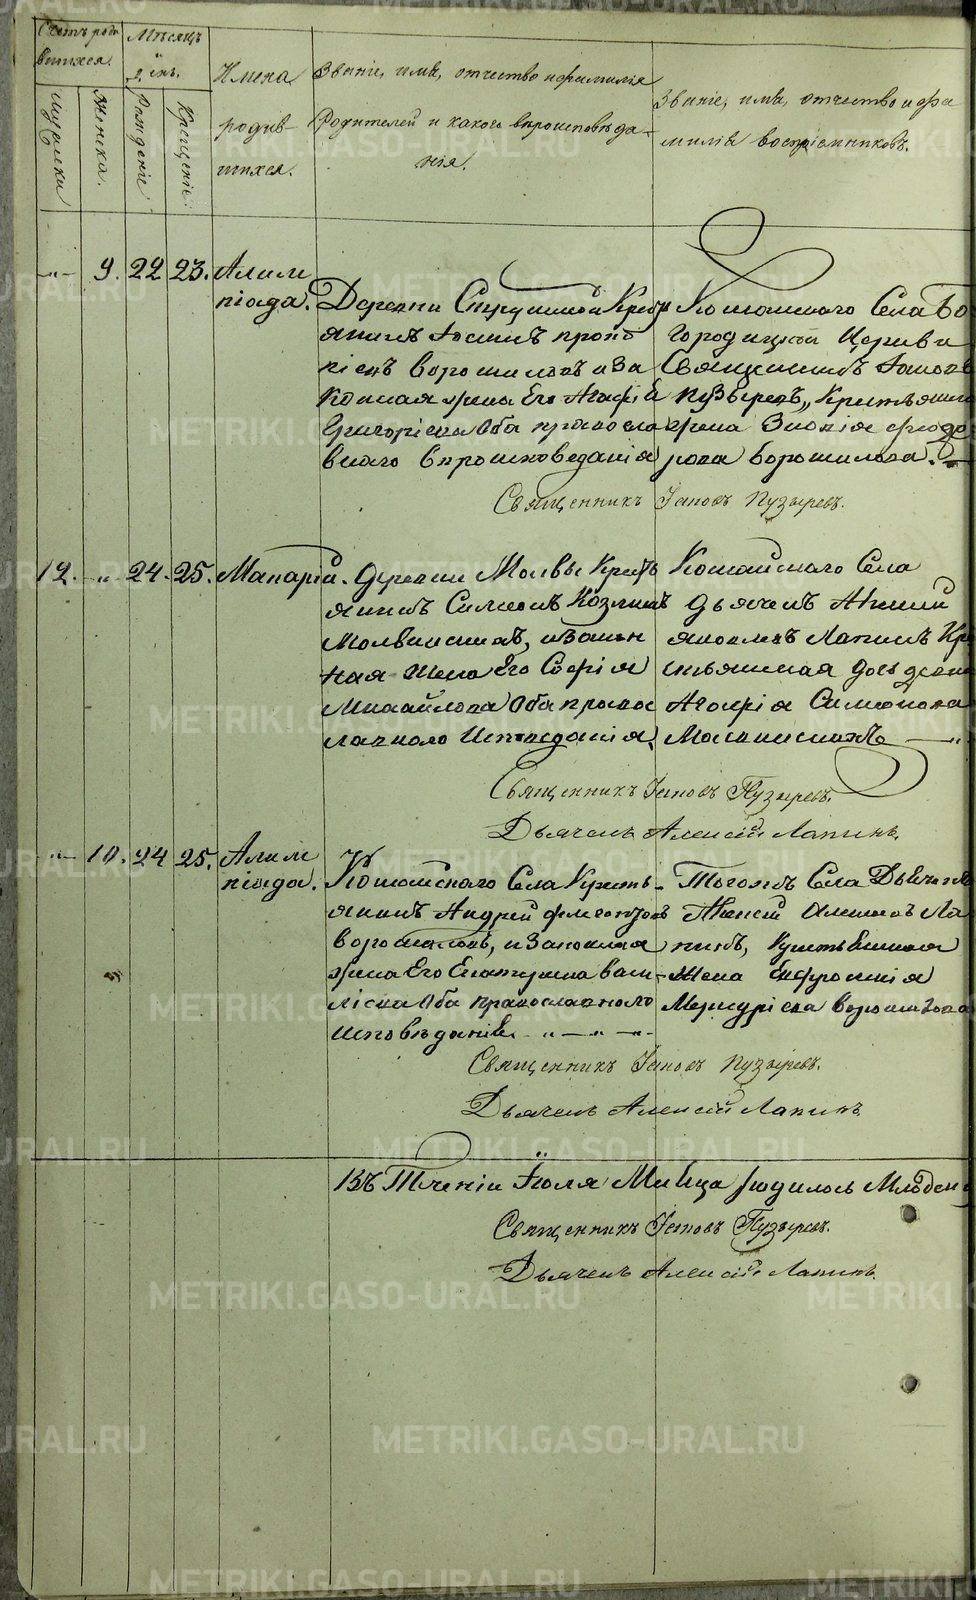 Счетъ роди
вшихся.
Мѣсяцъ
и
день.
Имена
родив-
шихся.
Званіе, имя, отчество и фамилія
Родителей и какого вѣроисповѣда-
нія.
Званіе, имя, отчество и фа
милія воспріемниковъ.
Мужеска
Женска.
Рожденіе
Крещеніе.
-"- 9. 22 23. Алим
піада.
Деревни Кресть
янинъ
Ворошиловъ и За
конная жена Его Агафія
Григоріева Оба правосла
внаго вѣроисповеданія
Кошайскаго Села Бо
городицкой Церкви
Священникъ Іаковъ
Пузыревъ, Крестьянск
жена Зиновія Федо
рова Ворошилова.
Священникъ Іаковъ Пузыревъ.
12. " 24. 25. Макарій.
Деревни Молвы Кресть
янинъ Симеонъ Козминъ
Молвинскихъ, и Закон
ная Жена Его Софія
Михайлова Оба правос
лавнаго Исповеданія.
Кошайскаго Села
Дьячекъ Алексій
Яковлевъ Лапинъ Кре
стьянская Дочь девица
Агафія Симеонова
Молвинскихъ
Священникъ Іаковъ Пузыревъ.
Дьячекъ Алексій Лапинъ.
-"- 10. 24 25. Алим
піада.
Кошайскаго Села Кресть-
янинъ Андрей
Ворошиловъ, и Законная
жена Его Екатерина Васи-
ліева Оба православнаго
Исповѣданія. - " - " - -
Тогожъ Села Дьячекъ
Алексій Ла
пинъ, Крестьянская
Жена Ефросинія
Меркуріева Ворошилова
Священникъ Іаковъ Пузыревъ.
Дьячекъ Алексій Лапинъ.
Въ Теченіи Іюля Месяца родилось Младен
Священникъ Іаковъ Пузыревъ.
Дьячекъ Алексій Лапинъ.
METRIKI.GASO-URAL.RU